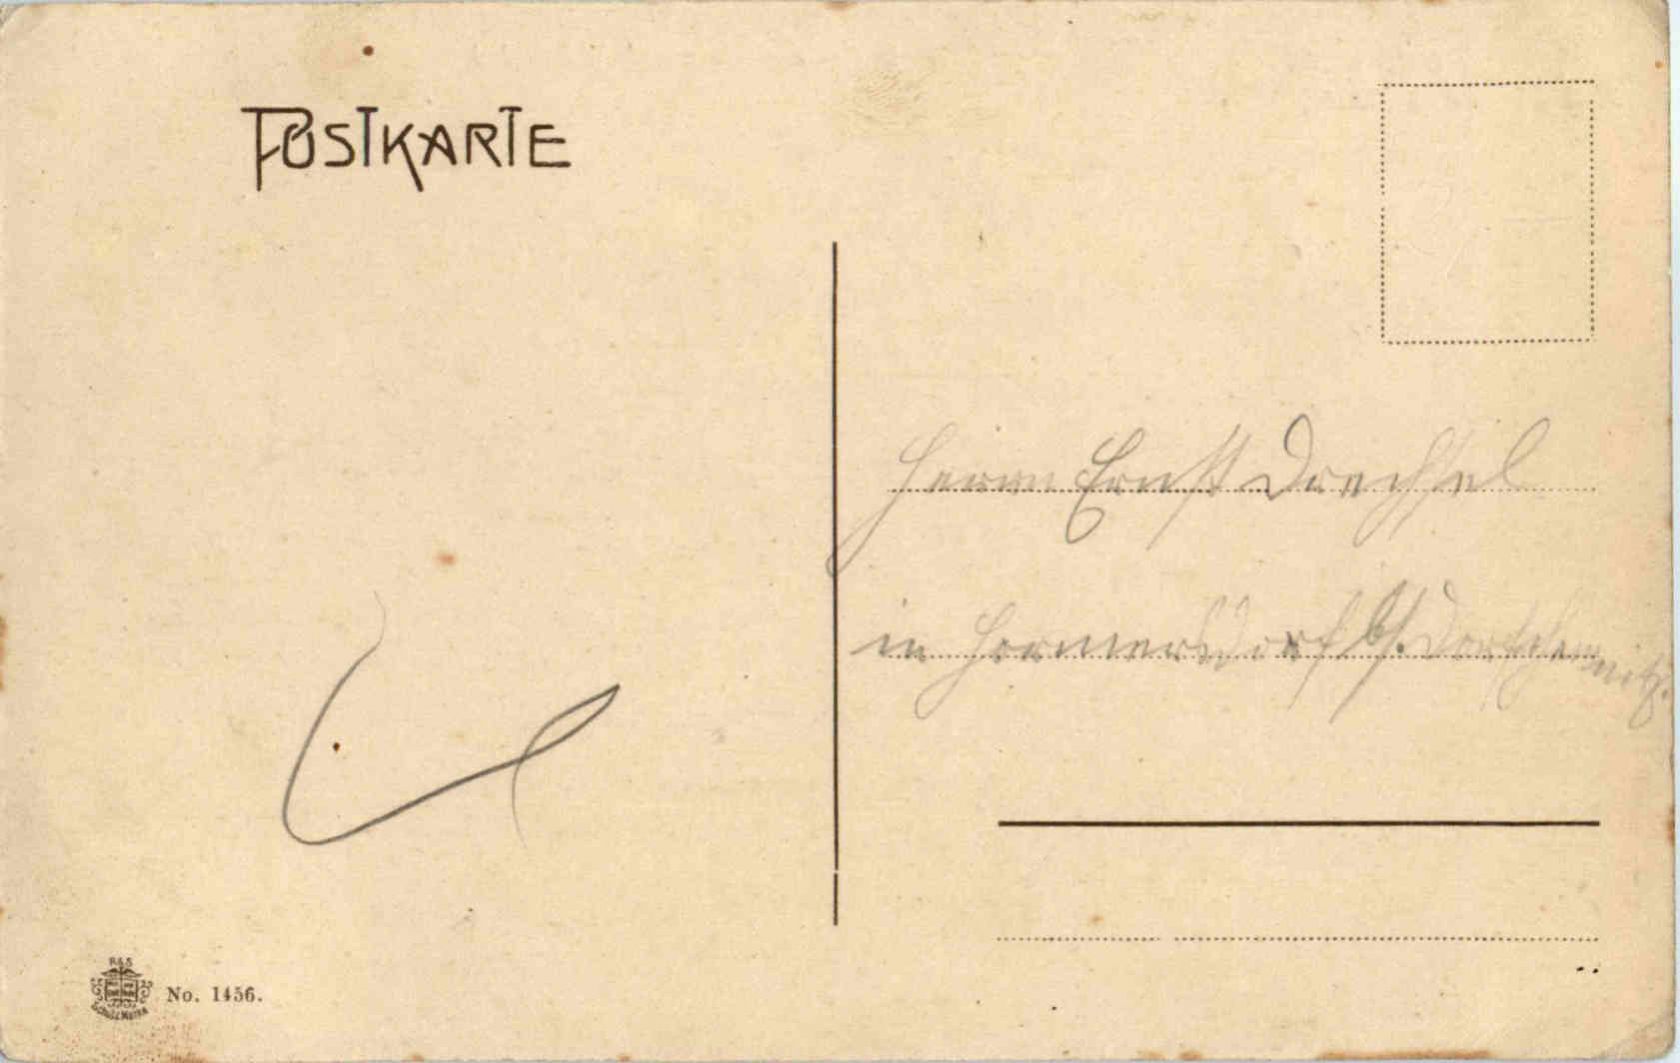 POSTKARTE
Herrn Ernst Drechsel
in Hormersdorf b/. Dorfchemnitz.
R&S
SCHUTZMARKE
No. 1456.